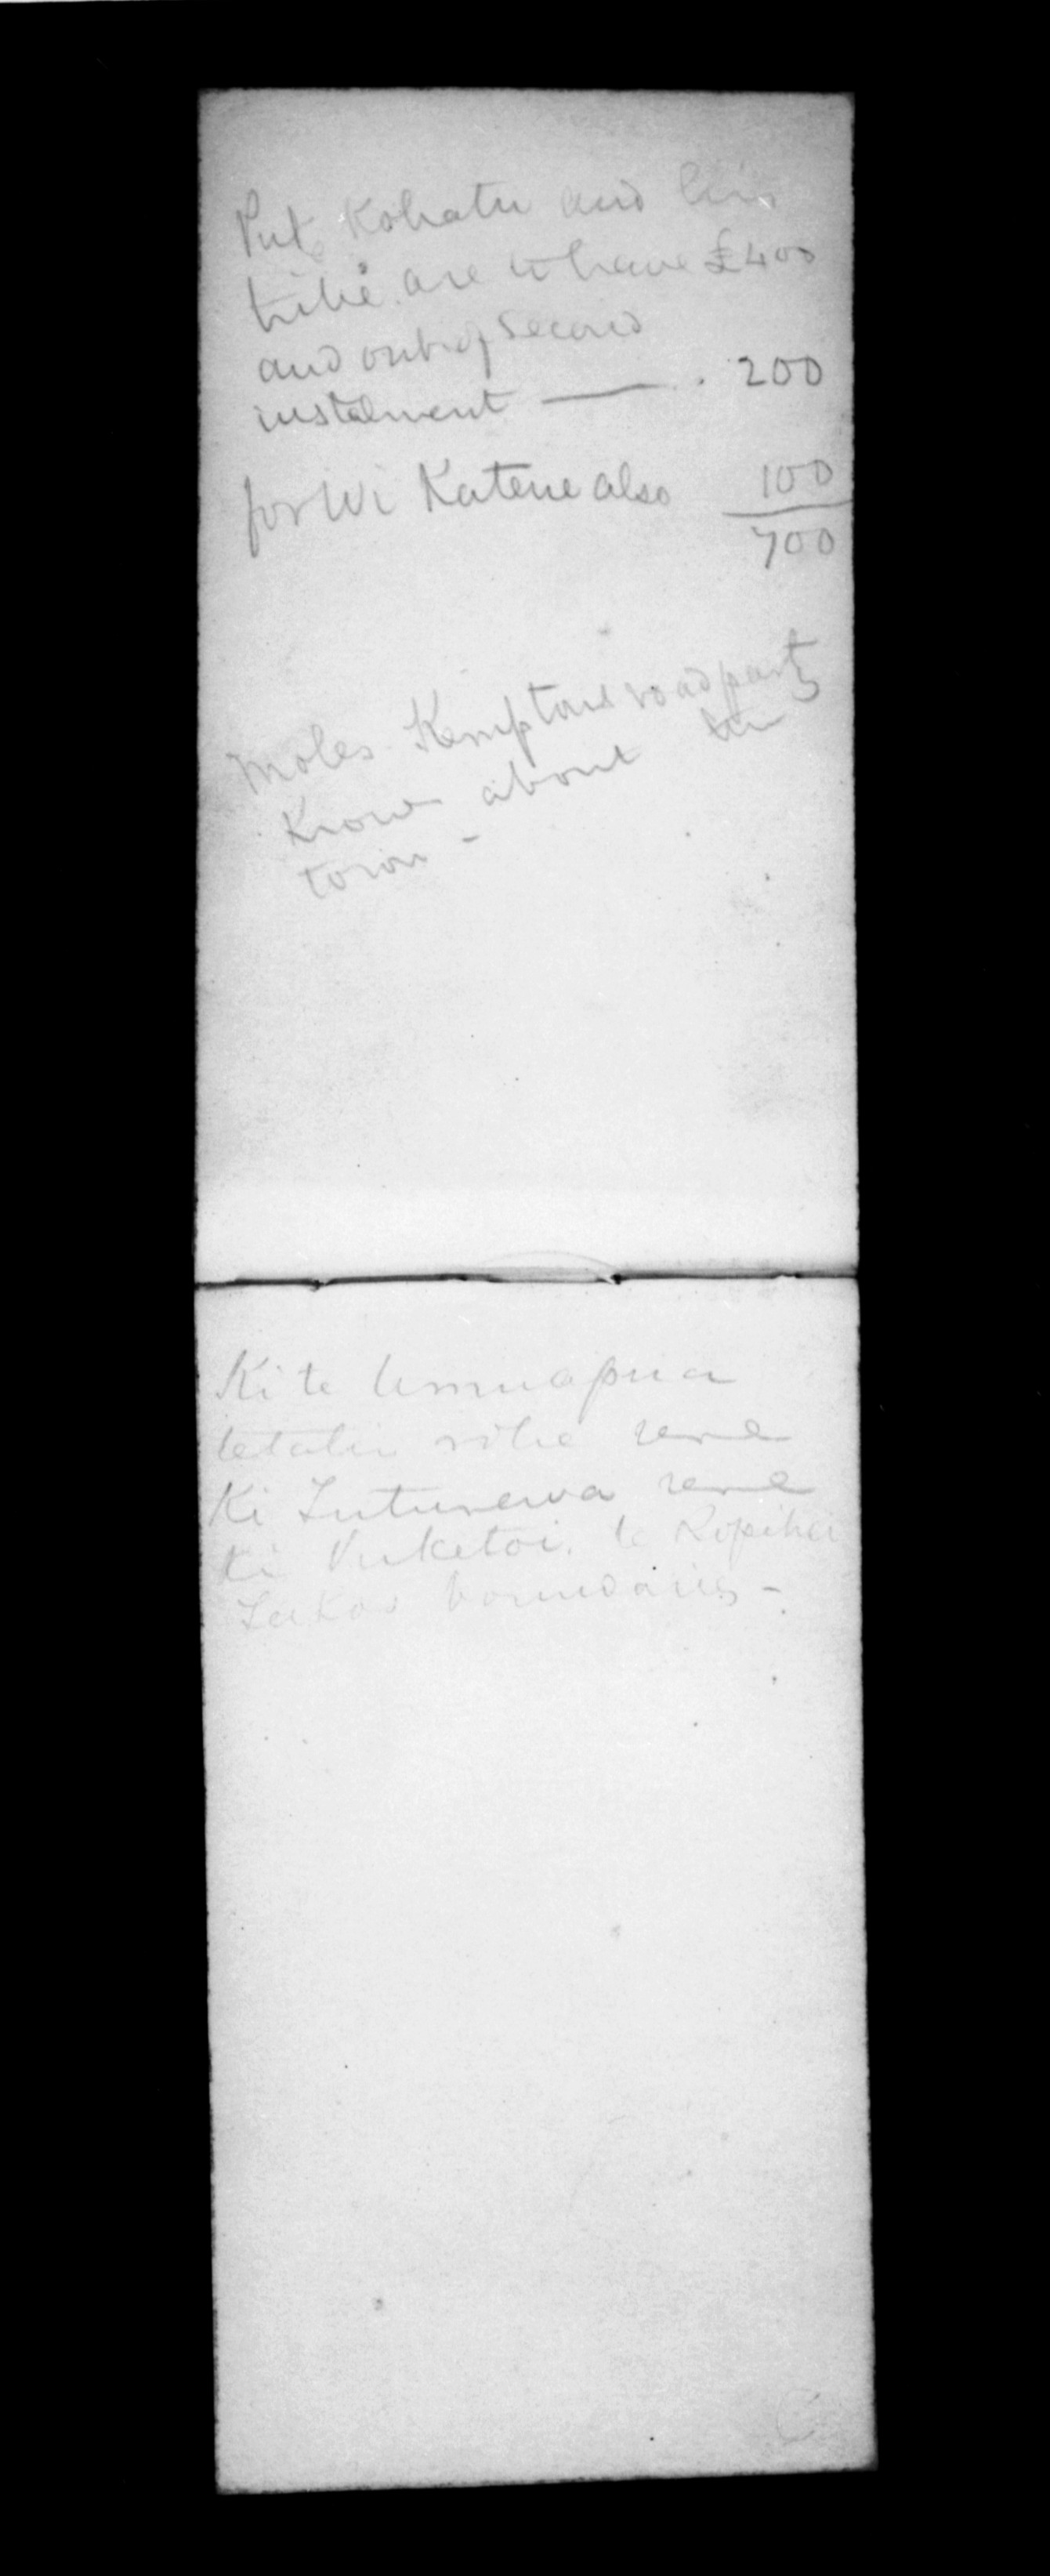 Put Kohatu and his
tribe are to have £400
and out of Second
instalment — . 200
for Wi Katene also 100
700
Moles Kemptons road party
Know about the
town -
Ki te Umuapua
rere
Ki Tuturewa rere
ki Puketoi.
boundaries -